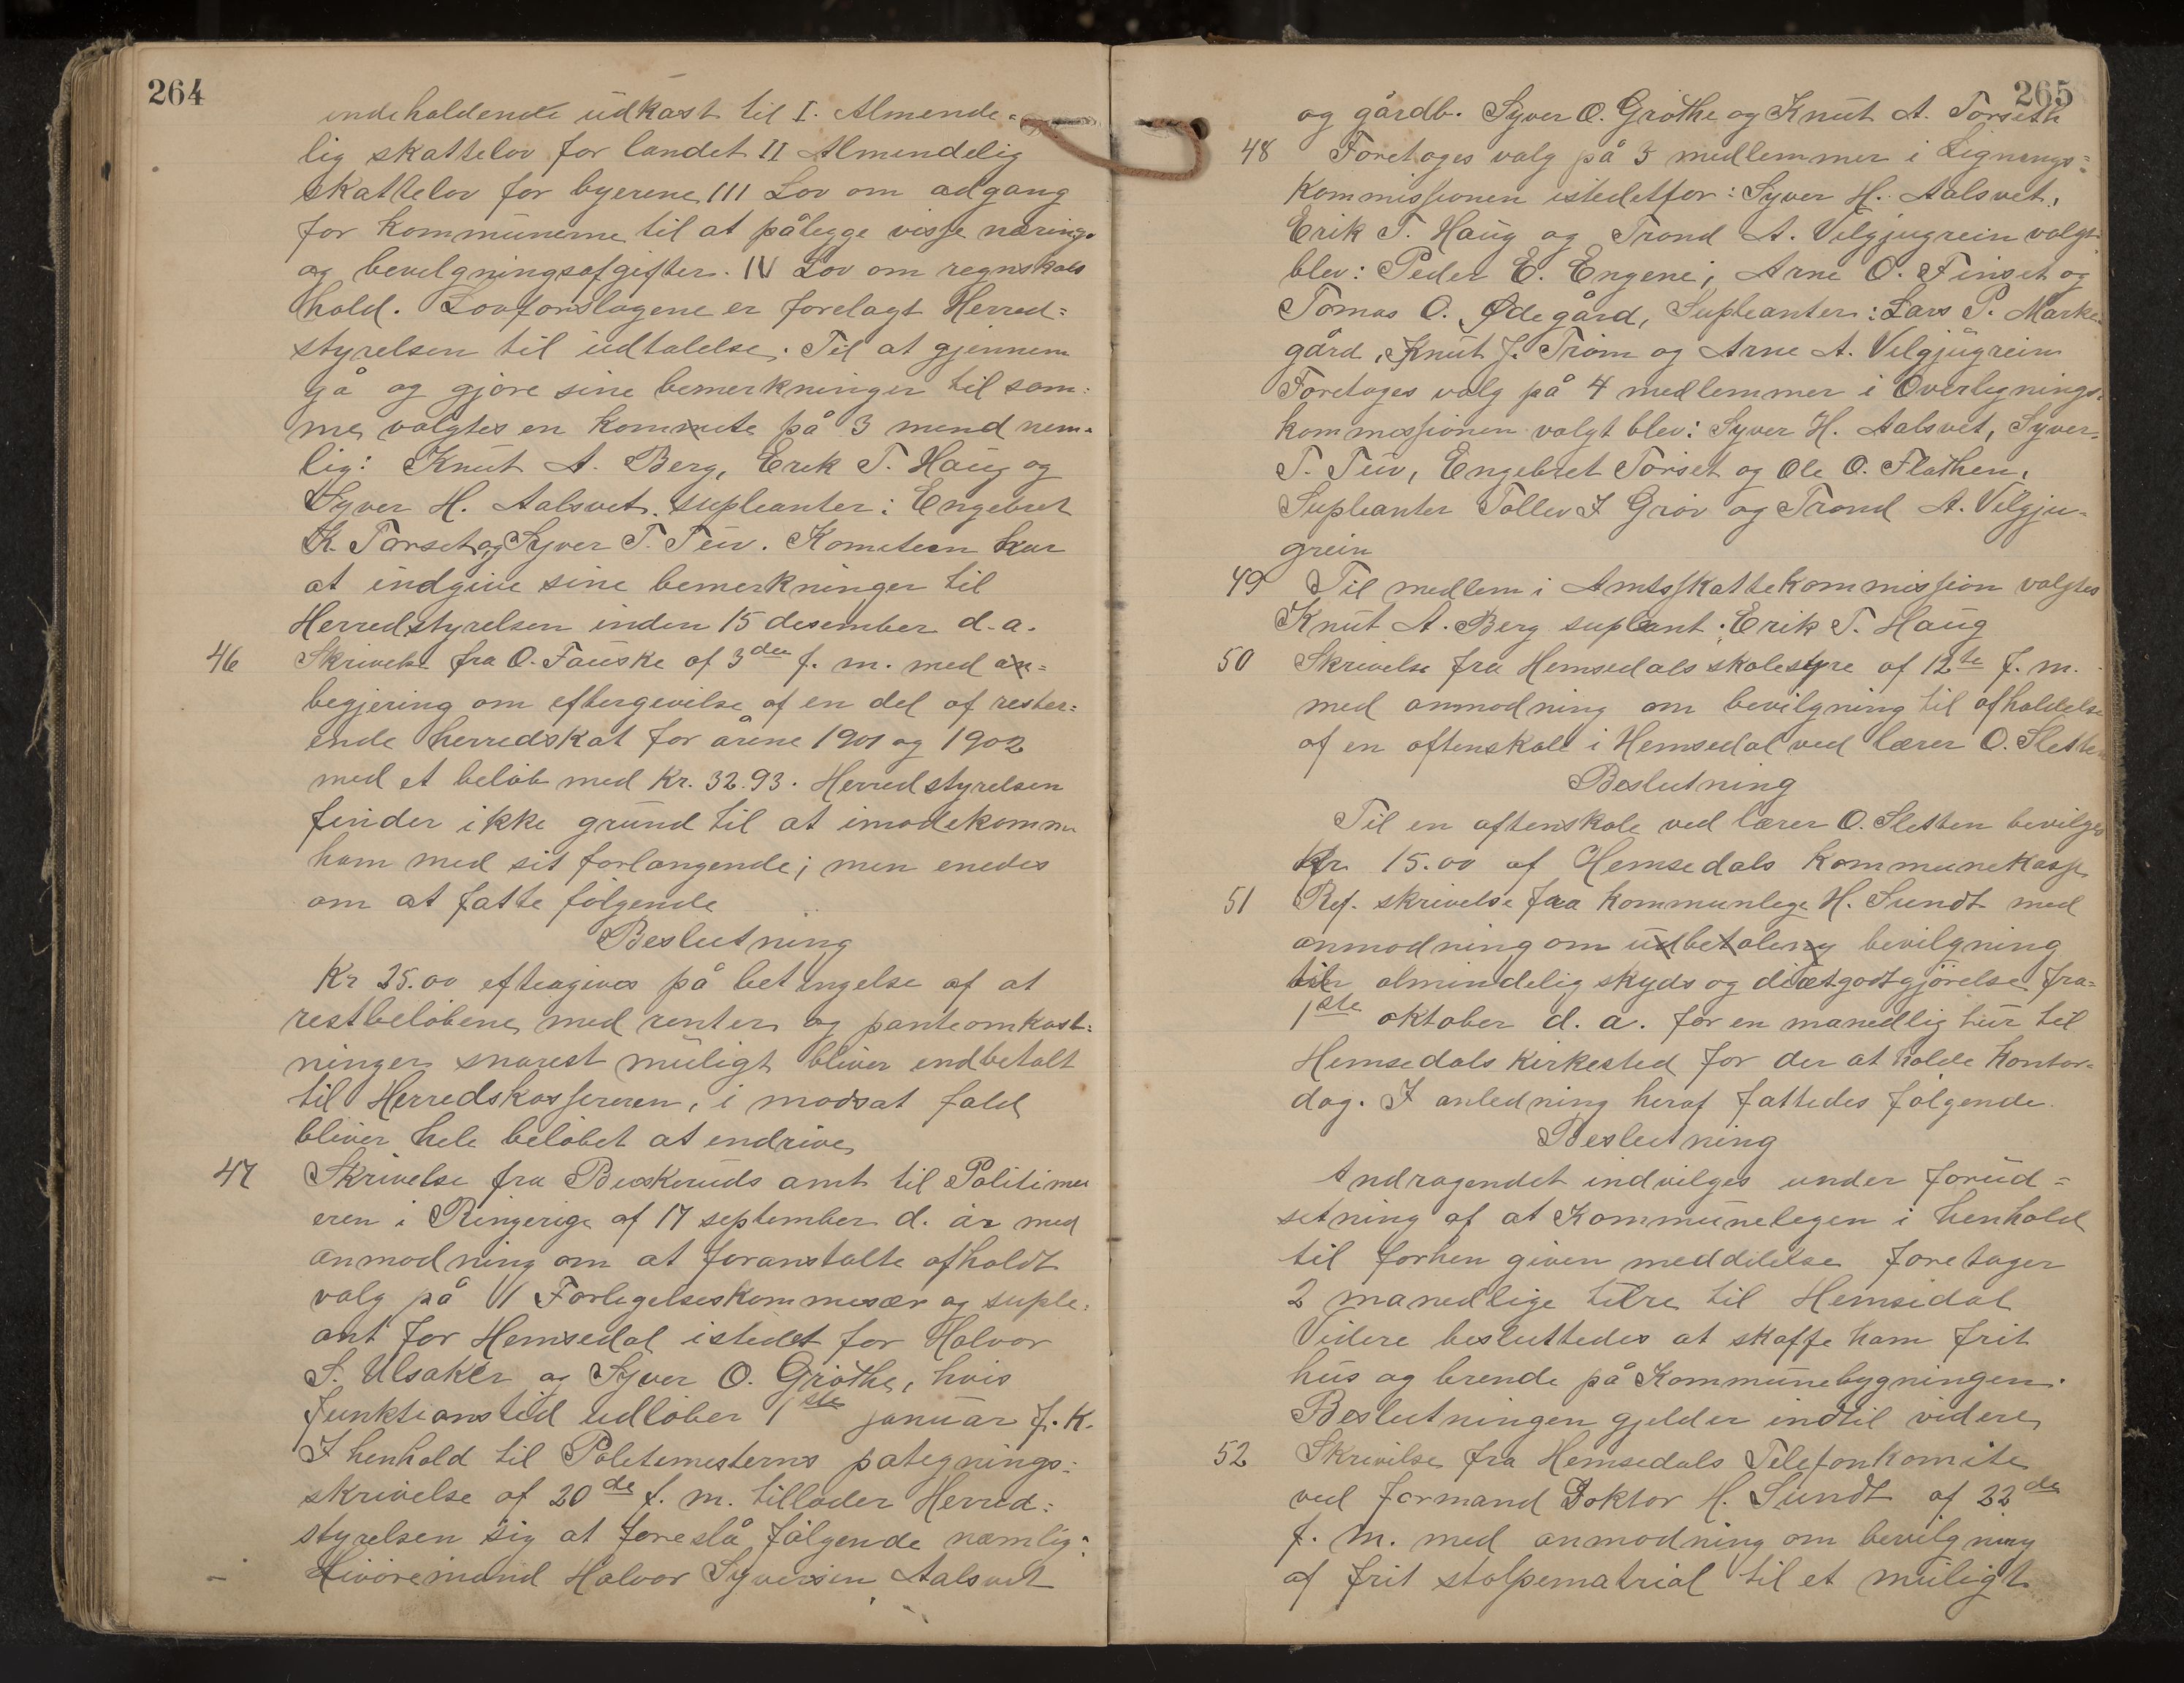 264
indeholdende udkast til I. Almende=
lig skattelov for landet II Almindelig
skattelov for byerene III Lov om adgang
for kommunerne til at pålegge visse nærings
og bevilgningsafgifter. IV Lov om regnskabs
hold. Lovforslagene er forelagt Herred=
styrelsen til udtalelse. Til at gjennem
gå og gjøre sine bemerkninger til sam=
me valgtes en komite på 3 mend nem=
lig: Knut A. Berg, Erik T. Haug og
Syver H. Aalsvet. supleanter: Engebret
K. Torset og Syver T. Tuv. Komiteen har
at indgive sine bemerkninger til
Herredstyrelsen inden 15 desember d.a.
46 Skrivelse fra O. Fauske af 3die f. m. med an=
begjering om eftergivelse af en del af rester=
ende herredskat for årene 1901 og 1902
med et beløb med Kr. 32.93. Herredstyrelsen
finder ikke grund til at imødekomme
ham med sit forlangende; men enedes
om at fatte følgende
Beslutning
Kr 25.00 eftergives på betingelse af at
restbeløbene med renter og panteomkost=
ninger snarest muligt bliver indbetalt
til Herredskassereren, i modsat fald
bliver hele beløbet at inddrive
47 Skrivelse fra Buskeruds amt til Politime
eren i Ringerige af 17 september d. år med
anmodning om at foranstalte afholdt
valg på 1 Forlegelseskommesær og suple=
ant for Hemsedal istedet for Halvor
S. Ulsaker og Syver O. Grøthe, hvis
funktionstid udløber 1ste januar f. K.
I henhold til Politemesterns pategnings=
skrivelse af 20de f. m. tillader Herred=
styrelsen sig at foreslå følgende næmlig:
Halvor Syversen Aalsvet
265
og gårdb. Syver O. Grøthe og Knut A. Torseth
48 Foretages valg på 3 medlemmer i Lignings=
kommissionen istedetfor: Syver H. Aalsvet,
Erik T. Haug og Trond A. Vilgjugrein valgt
blev: Peder E. Engene, Arne O. Finset og
Tomas O. Ødegård, Supleanter: Lars P. Marke=
gård, Knut J. Trøm og Arne A. Vilgjugrein
Foretages valg på 4 medlemmer i Overlignings=
kommissionen valgt blev: Syver H. Aalsvet, Syver
T. Tuv, Engebret Torset og Ole O. Flathen.
Supleanter Tollev I Grøv og Trond A. Vilgju=
grein
49 Til medlem i Amtsskattekommission valgtes
Knut A. Berg supleant: Erik T. Haug
50 Skrivelse fra Hemsedals skolestyre af 12te f. m.
med anmodning om bevilgning til afholdelse
af en aftenskole i Hemsedal ved lærer O. Sletten
Beslutning
Til en aftenskole ved lærer O. Sletten bevilges
Kr. 15.00 af Hemsedals kommunekasse
51 Ref. skrivelse fra kommunlege H. Sundt med
anmodning om udbetaling bevilgning
til almindelig skyds og diætgodtgjørelse fra
1ste oktober d. a. for en manedlig tur til
Hemsedals kirkested for der at holde kontor=
dag. I anledning heraf fattedes følgende
Beslutning
Andragendet indvilges under forud=
setning af at Kommunelegen i henhold
til forhen given meddelelse foretager
2 manedlige ture til Hemsedal
Videre besluttedes at skaffe ham frit
hus og brende på Kommunebygningen.
Beslutningen gjelder indtil videre
52 Skrivelse fra Hemsedals Telefonkomite
ved formand Doktor H. Sundt af 22de
f. m. med anmodning om bevilgning
af frit stolpematrial til et muligt